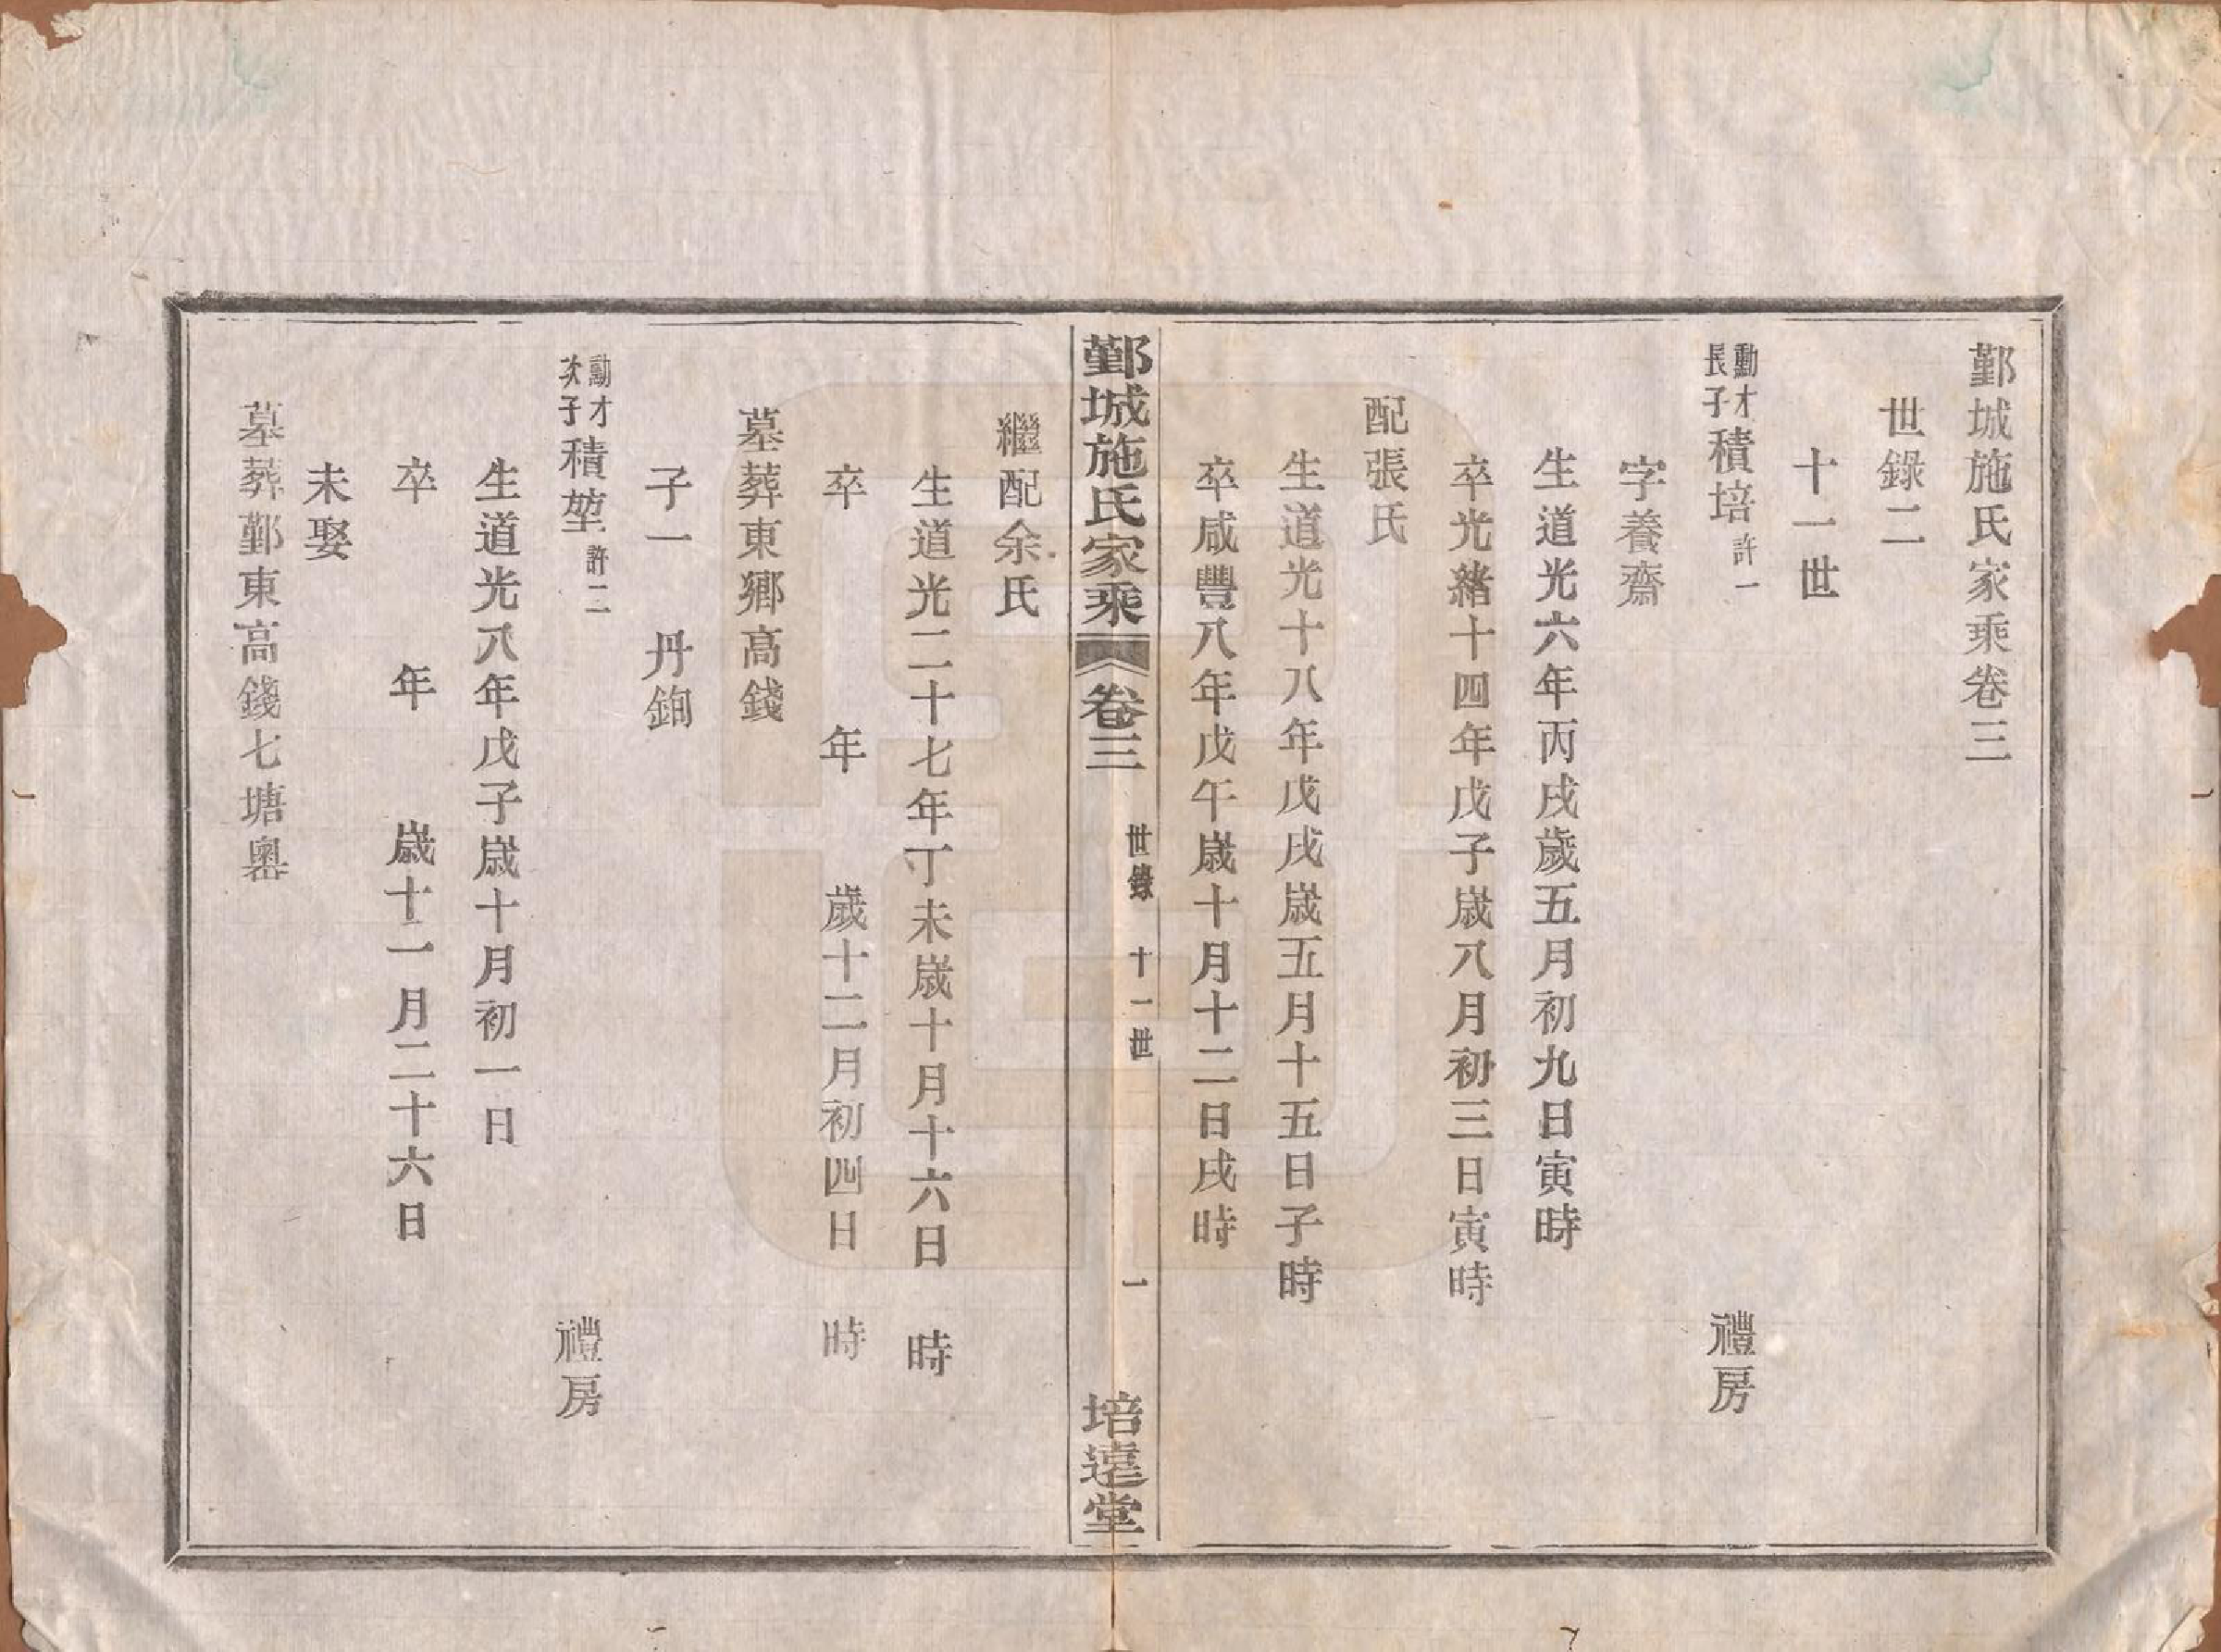 鄞城施氏家乘卷三
世錄二
十一世
勳才長子積培許一 禮房
字養齋
生道光六年丙戌歲五月初九日寅時
卒光緒十四年戊子歲八月初三日寅時
配張氏
生道光十八年戊戌歲五月十五日子時
卒咸豐八年戊午歲十月十二日戌時
鄞城施氏家乘 卷三 世錄 十一世 一 培遠堂
繼配余氏
生道光二十七年丁未歲十月十六日 時
卒 年 歲十二月初四日 時
墓葬東鄉高錢
子一 丹銁
勳才次子積堃許二 禮房
生道光八年戊子歲十月初一日
卒 年 歲十一月二十六日
未娶
墓葬鄞東高錢七塘嶴